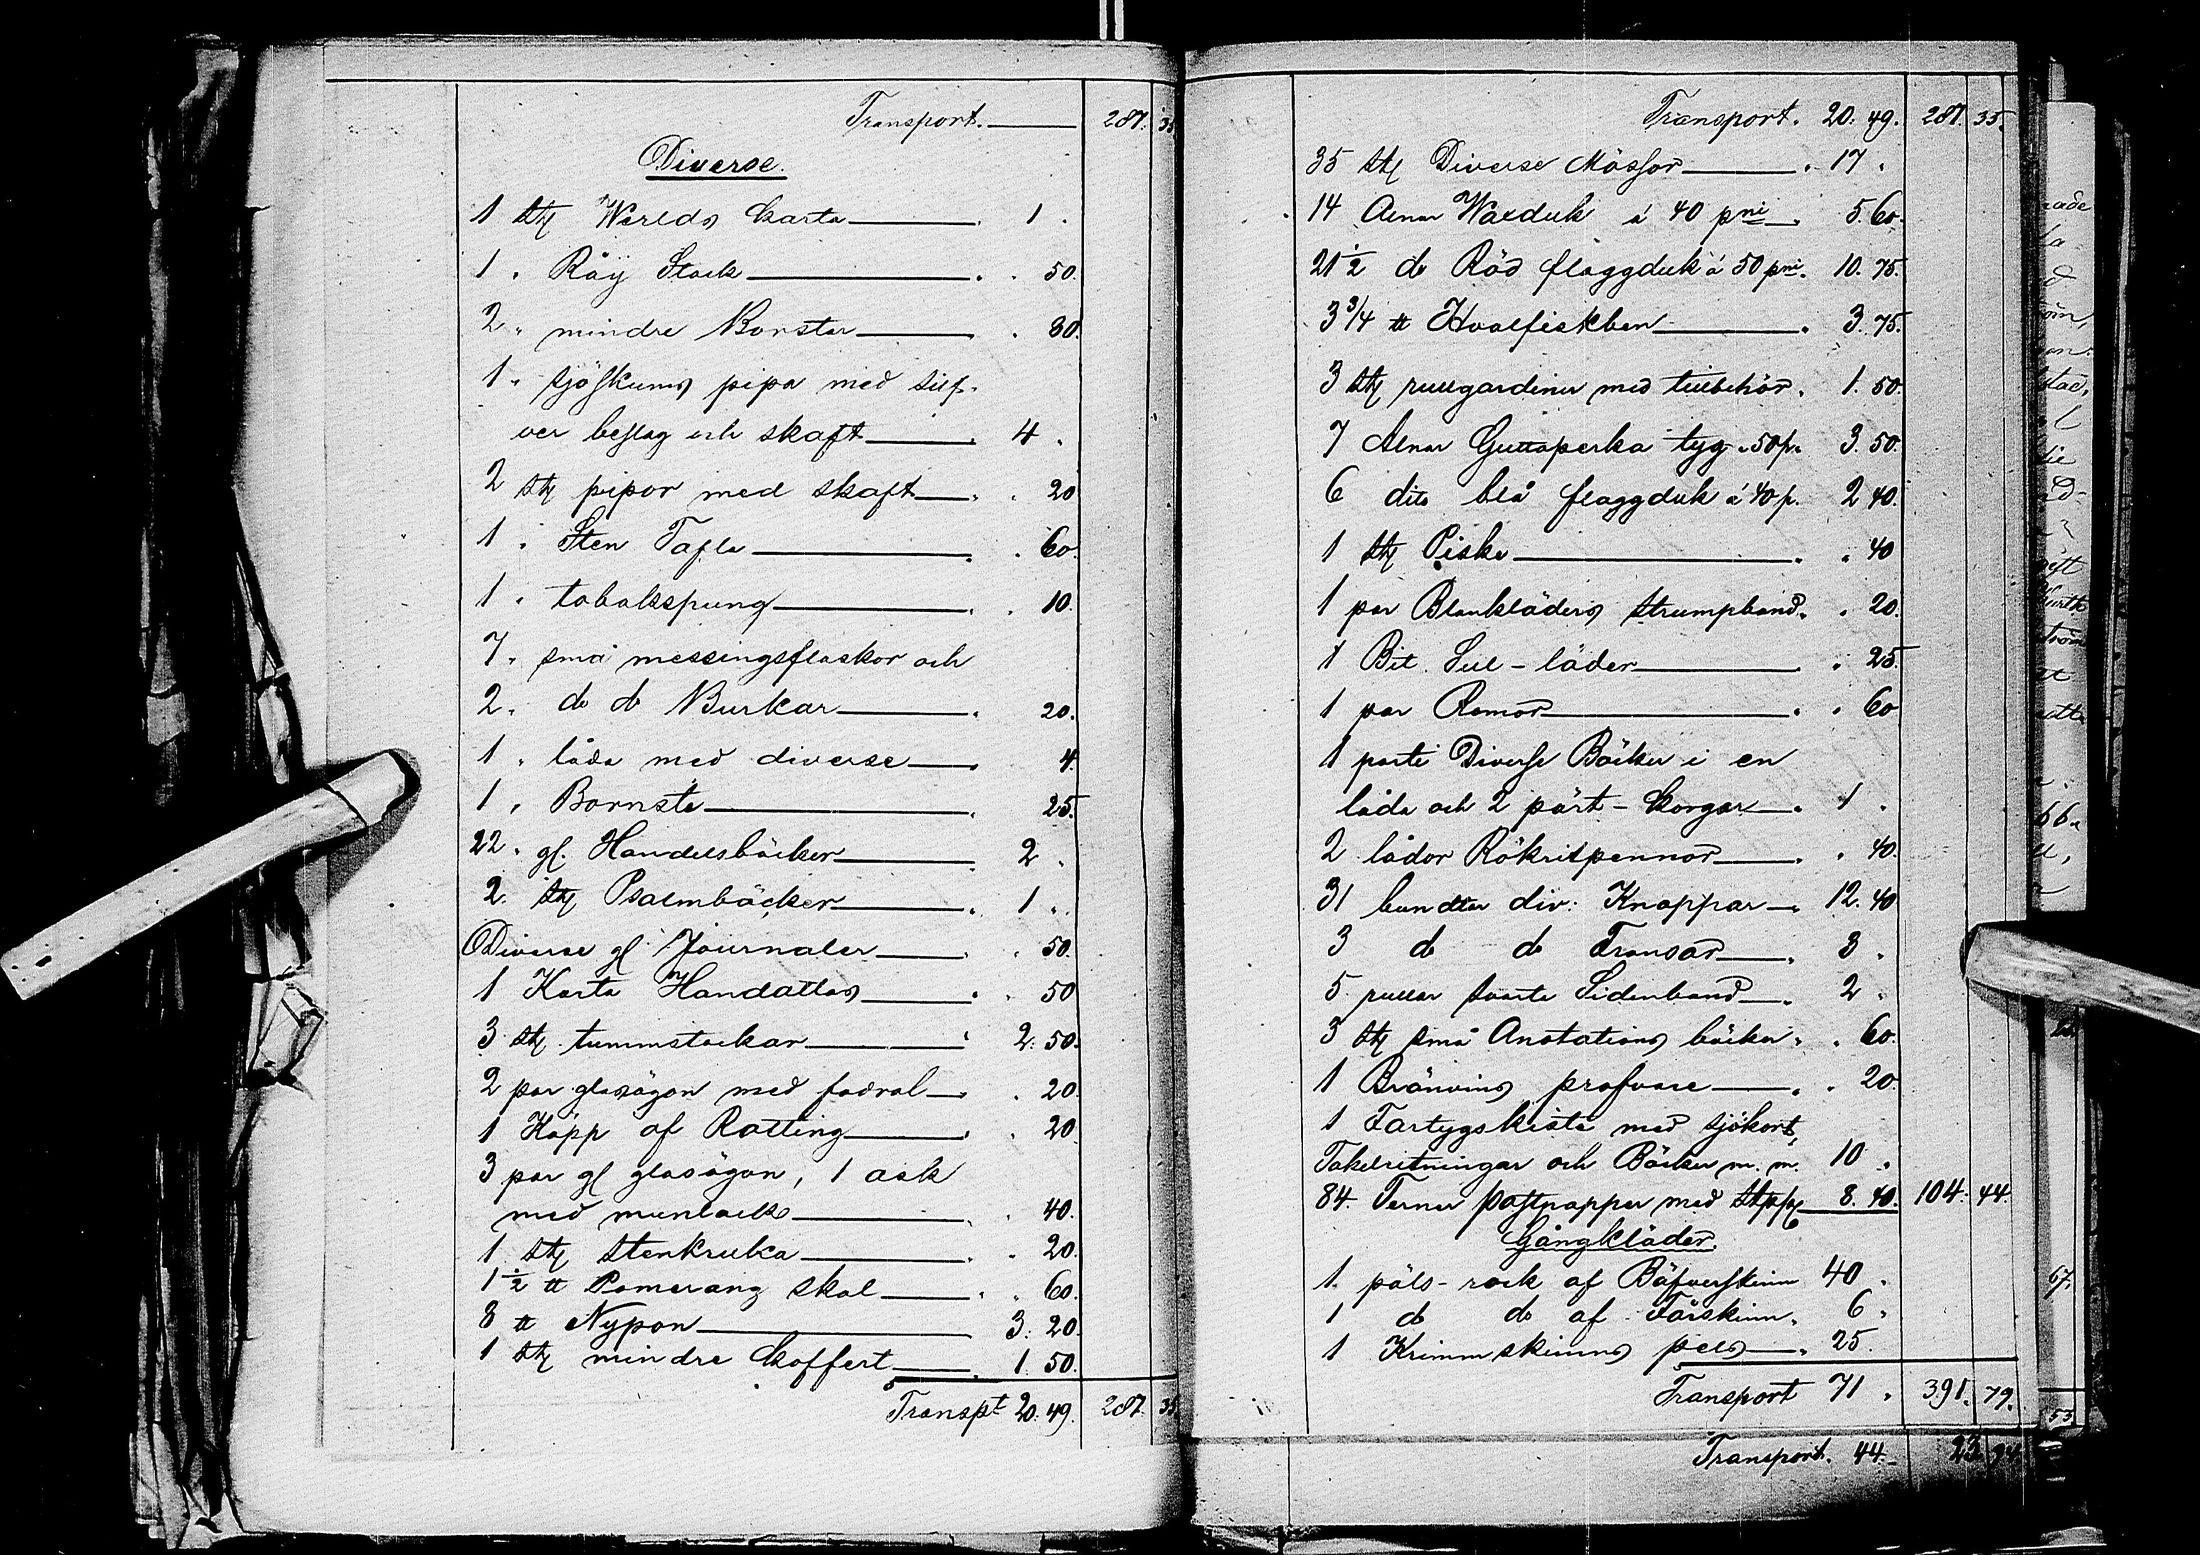 Transport. 287. 35
Diverse.
1 stk Werlds karta 1 .
1 " Råg Stock . 50.
2 " mindre Borstar . 30.
1 " sjöskums pipa med silf-
ver beslag och skaft 4 .
2 stk pipor med skaft . 20
1 " Sten Tafla . 60.
1 " tobakspung . 10.
7 " små messingsflaskor och
2 " do do Burkar 20.
1 " låda med diverse 4.
1 " Borste 25.
22 " gl. Handelsböcker 2 .
2. stk Psalmböcker 1 ..
Diverse gl Journaler . 50.
1 Karta Handattlas . 50
3 stk tummstockar 2. 50.
2 par glasögon med fodral . 20.
1 Käpp af Rotting . 20
3 par gl glasögon, 1 ask
med munlack . 40.
1 stk stenkruka . 20.
1½ ℔ Pomerang skal . 60.
8 ℔ Nypon 3. 20.
1 stk mindre koffert 1. 50.
Transpt 20. 49. 287. 35
Transport. 20. 49. 287. 35.
35 stk Diverse Mössor 17 .
14 Alnar Waxduk á 40 pni 5. 60.
21½ do Röd flaggduk á 50 pni. 10. 75.
3¾ ℔ Hvalfiskben 3. 75.
3 stk rullgardiner med tillbehör. 1. 50.
7 Alnar Guttaperka tyg " 50 p. 3. 50.
6 dito blå flaggduk á 40 p. 2 40.
1 stk Piska . 40
1 par Blankläders strumpband. . 20.
1 Bit Sul-läder . 25.
1 par Remor . 60
1 parti Diverse Böcker i en
låda och 2 pärt-korgar 1 .
2 lådor Rökritpennor . 40.
31 bundter div: Knappar 12. 40
3 do do Fransar 3 .
5 rullar svarta Sidenband 2 .
3 stk små Anotations böcker . 60.
1 Bränvins profvare . 20.
1 Fartygskista med sjökort,
Takelritningar och Böcker m. m. 10 .
84. Ferner postpapper med 8. 40. 104. 44.
Gångkläder.
1. päls-rock af Bäfverskinn 40 .
1 do do af Fårskinn. 6 .
1 Krimmskinns pels 25.
Transport 71 . 391. 79.
Transport. 44.- 23. 94.